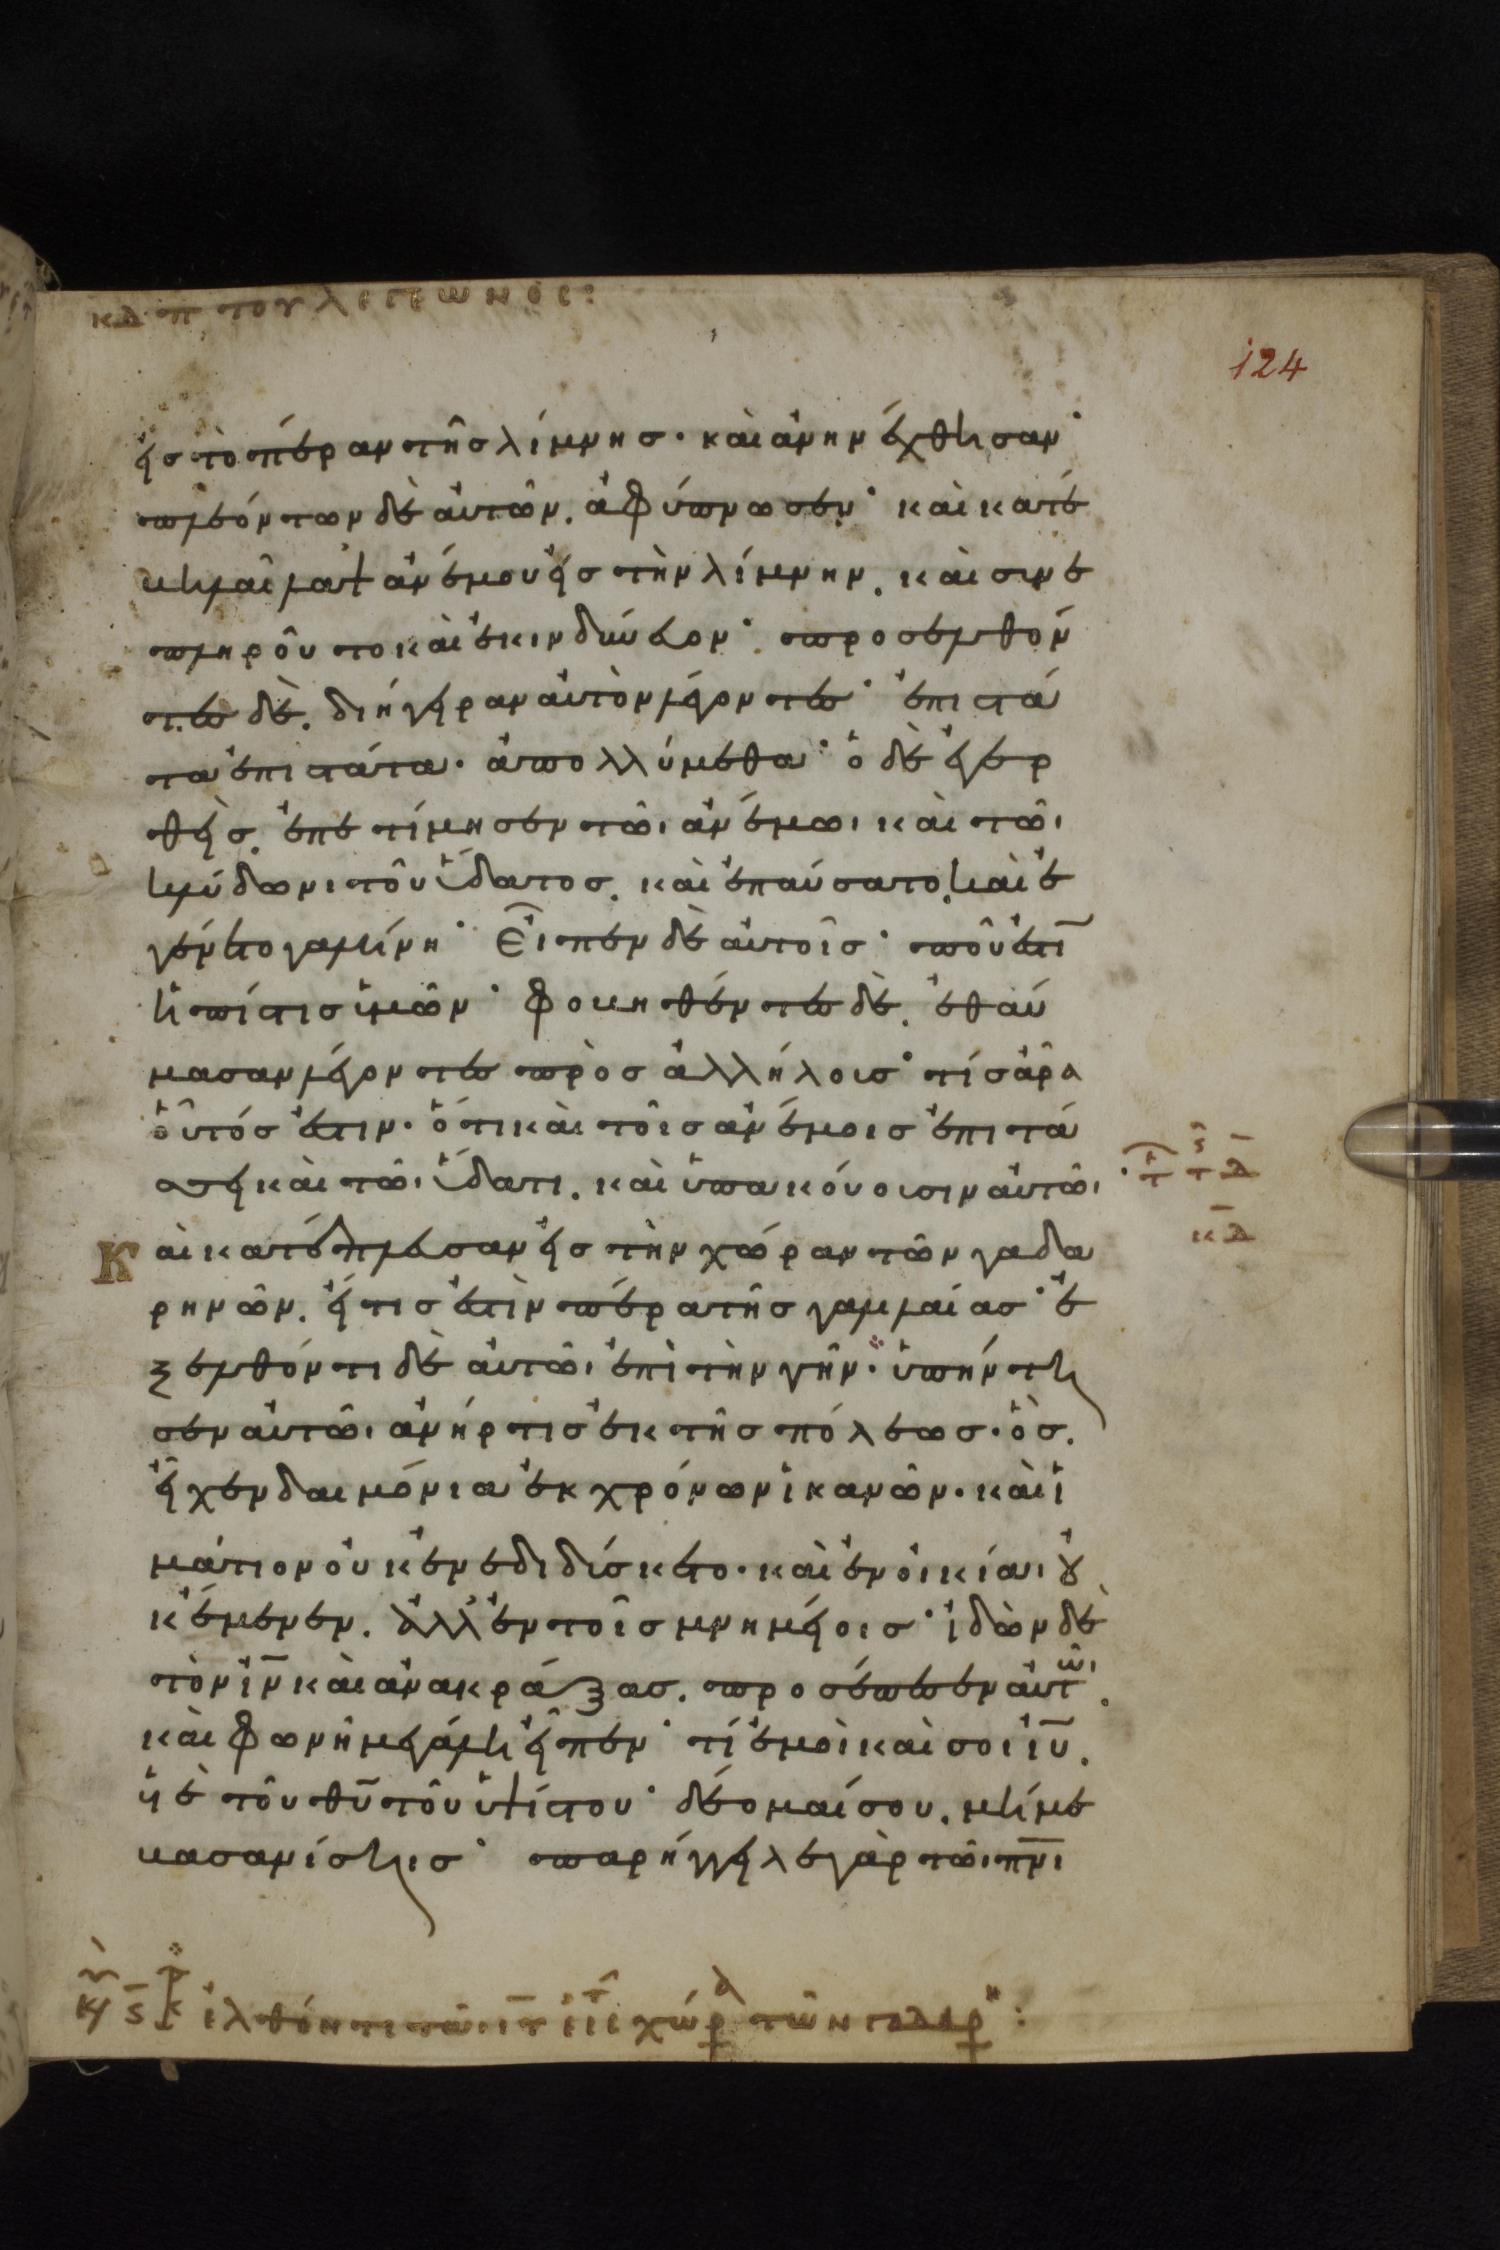 κδ περ του λεγεωνος:
124
εἰς τὸ πέραν τῆς λίμνης· καὶ ἀνηνέχθησαν·
πλεόντων δὲ αὐτῶν. ἀφύπνωσεν· καὶ κατέ
βη λαῖλαψ ἀνέμου εἰς τὴν λίμνην. καὶ συνε
πληροῦντο καὶ ἐκινδύνευον· προσελθόν
τες δὲ. διήγειραν αὐτὸν λέγοντες· ἐπιστά
τα ἐπιστάτα· ἀπολλύμεθα· ὁ δὲ ἐγερ
θεὶς. ἐπετίμησεν τῶι ἀνέμωι καὶ τῶι
κλύδωνι τοῦ ὕδατος. καὶ ἐπαύσατο. καὶ ἐ
γένετο γαλήνη· Εἶπεν δὲ αὐτοῖς· ποῦ ἐστῑ
ἡ πίστις ὑμῶν· φοβηθέντες δὲ. ἐθαύ
μασαν λέγοντες πρὸς ἀλλήλους· τίς ἆρα
οὗτός ἐστιν· ὅτι καὶ τοῖς ἀνέμοις ἐπιτά
σσει καὶ τῶι ὕδατι. καὶ ὑπακούουσιν αὐτῶι·
τ τ δ
κδ
Καὶ κατέπλευσαν εἰς τὴν χώραν τῶν γαδα
ρηνῶν. ἥτις ἐστὶν πέρα τῆς γαλιλαίας· ἐ
ξελθόντι δὲ αὐτῶι ἐπὶ τὴν γῆν· ὑπήντη
σεν αὐτῶι ἀνήρ τις ἐκ τῆς πόλεως· ὃς.
εἶχεν δαιμόνια ἐκ χρόνων ἱκανῶν· καὶ ἱ
μάτιον οὐκ ἐνεδιδύσκετο· καὶ ἐν οἰκίαι οὐ
κ ἔμενεν. ἀλλ' ἐν τοῖς μνημείοις· ἰδὼν δὲ
τὸν ιν̄ καὶ ἀνακράξας. προσέπεσεν αὐτῶι.
καὶ φωνῆ μεγάλη εἶπεν· τί ἐμοὶ καὶ σοι ιῡ.
υἱὲ τοῦ θῡ τοῦ ὑψίστου· δέομαί σου. μή με
βασανίσηις· παρήγγειλε γὰρ τῶι πνι
ἐλθόντι τῶ ιυ εἰς χώρ τῶν γαδαρ: